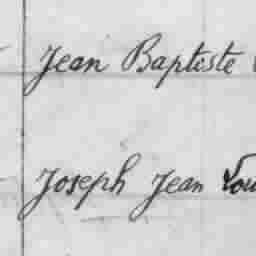 Jean Baptiste
Joseph Jean Lou